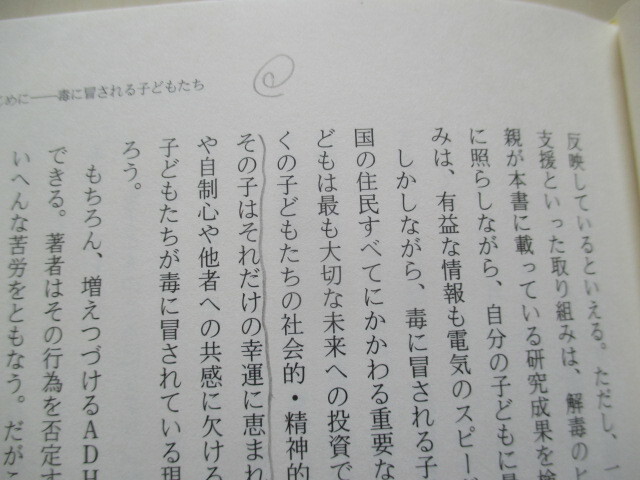 じめに――毒に冒される子どもたち
反映しているといえる。ただし、一
支援といった取り組みは、解毒のと
親が本書に載っている研究成果を検
に照らしながら、自分の子どもに見
みは、有益な情報も電気のスピード
しかしながら、毒に冒される子
国の住民すべてにかかわる重要な
どもは最も大切な未来への投資で
くの子どもたちの社会的・精神的
その子はそれだけの幸運に恵まれ
や自制心や他者への共感に欠ける
子どもたちが毒に冒されている現
ろう。
もちろん、増えつづけるADH
できる。著者はその行為を否定す
いへんな苦労をともなう。だがこ